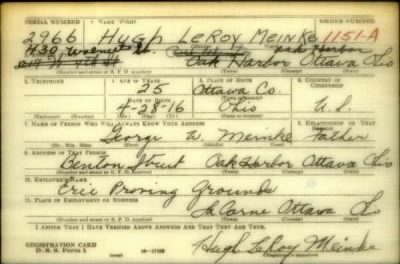 SERIAL NUMBER 1. NAME (Print) ORDER NUMBER
2966 HUGH LEROY MEINKE 1151-A
430 Walnut St. Oak Harbor
Oak Harbor Ottawa Ohio
(Number and street or R. F. D. number) (Town) (County) (State)
3. TELEPHONE 4. AGE IN YEARS 5. PLACE OF BIRTH 6. COUNTRY OF CITIZENSHIP
25 Ottawa Co.
DATE OF BIRTH
4-28-16 Ohio U.S.
7. NAME OF PERSON WHO WILL ALWAYS KNOW YOUR ADDRESS 8. RELATIONSHIP OF THAT PERSON
George W. Meinke Father
(Mr., Mrs., Miss) (First) (Middle) (Last)
9. ADDRESS OF THAT PERSON
Benton Street Oak Harbor Ottawa Ohio
(Number and street or R. F. D. number) (Town) (County) (State)
10. EMPLOYER'S NAME
Erie Proving Grounds
11. PLACE OF EMPLOYMENT OR BUSINESS
La Carne Ottawa O
(Number and street or R. F. D. number) (Town) (County) (State)
I AFFIRM THAT I HAVE VERIFIED ABOVE ANSWERS AND THAT THEY ARE TRUE.
REGISTRATION CARD
D. S. S. Form 1 Hugh LeRoy Meinke